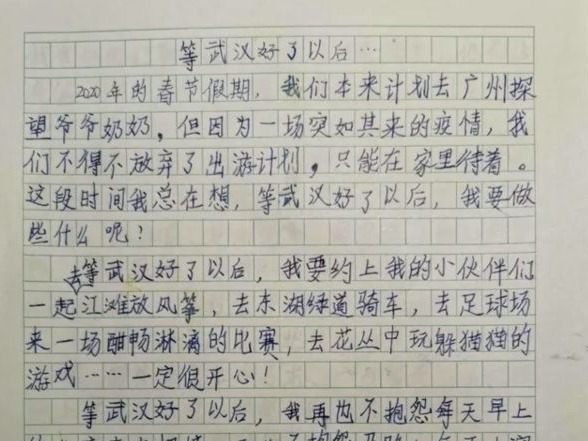 等武汉好了以后…
2020年的春节假期，我们本来计划去广州探
望爷爷奶奶，但因为一场突如其来的疫情，我
们不得不放弃了出游计划，只能在家里待着。
这段时间我总在想，等武汉好了以后，我要做
些什么呢？
等武汉好了以后，我要约上我的小伙伴们
一起去江滩放风筝，去东湖绿道骑车，去足球场
来一场酣畅淋漓的比赛，去花丛中玩躲猫猫的
游戏……一定很开心！
等武汉好了以后，我再也不抱怨每天早上